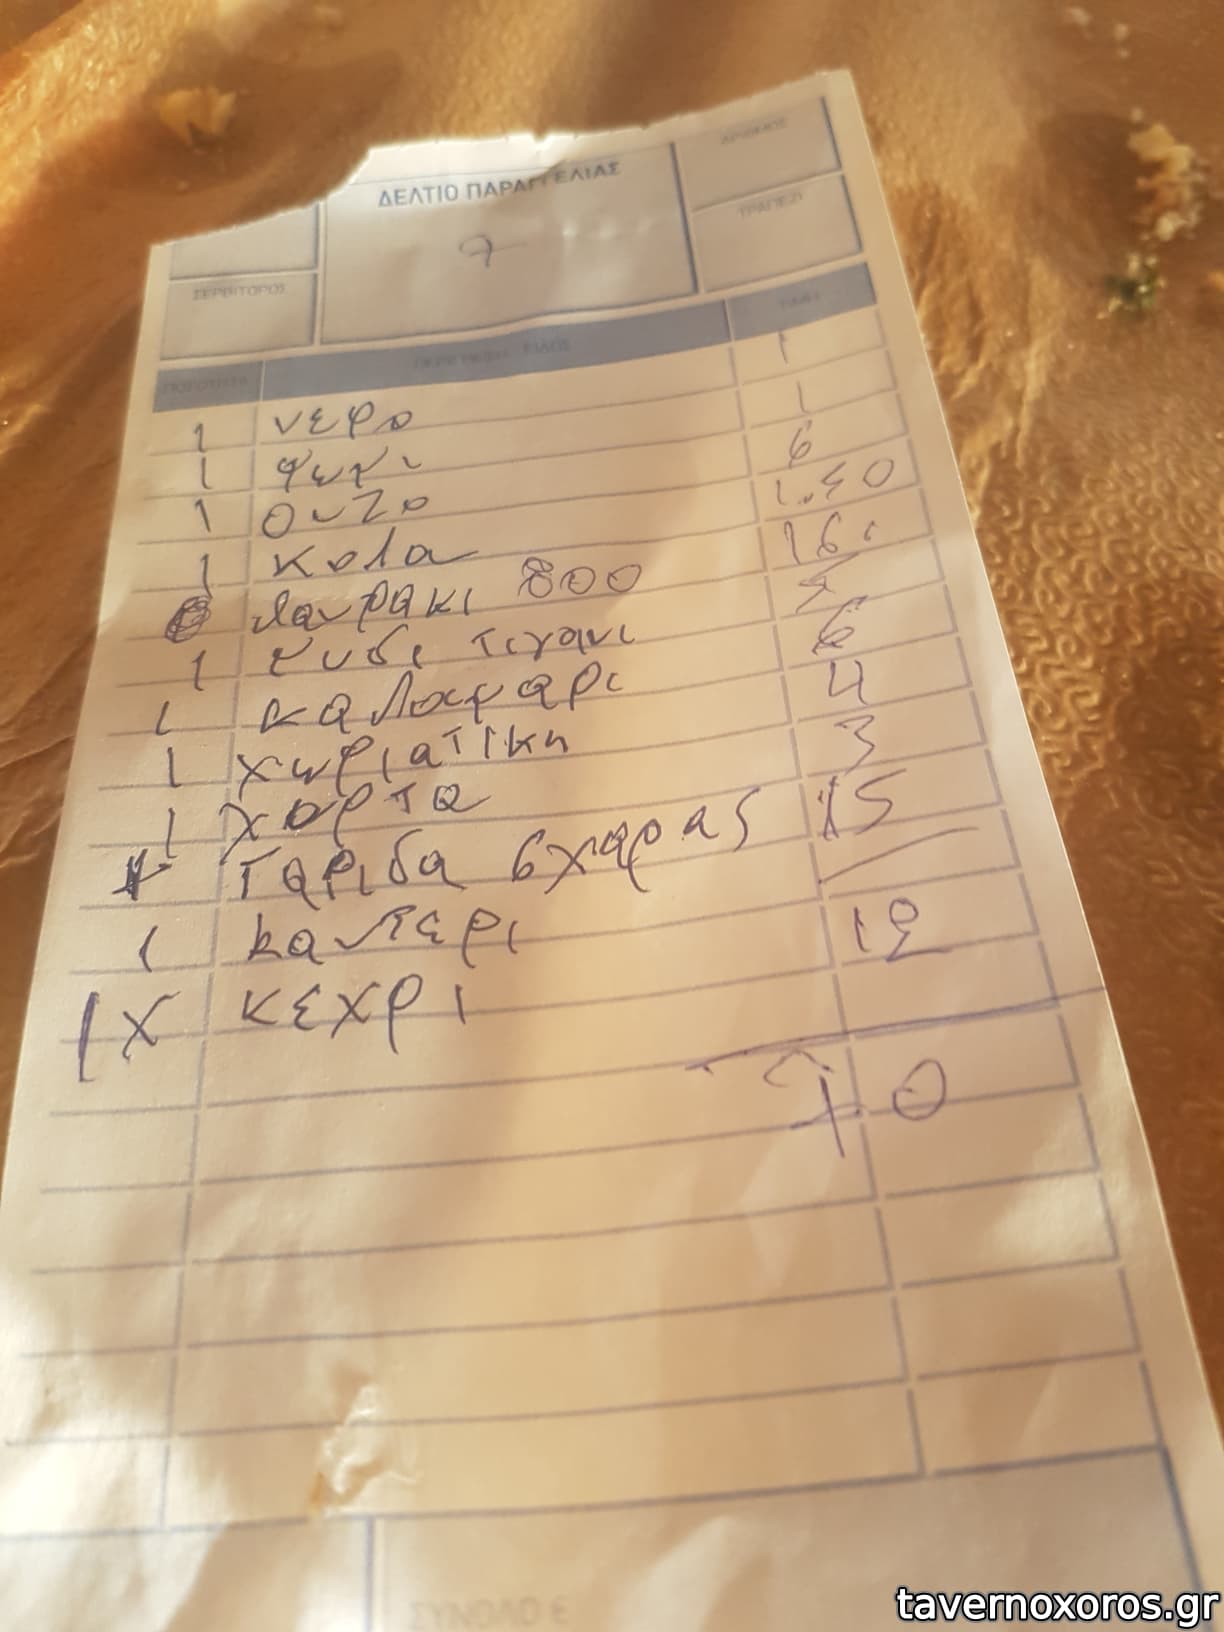 ΔΕΛΤΙΟ ΠΑΡΑΓΓΕΛΙΑΣ
ΑΡΙΘΜΟΣ
7
ΤΡΑΠΕΖΙ
ΣΕΡΒΙΤΟΡΟΣ
ΠΟΣΟΤΗΤΑ ΕΙΔΟΣ
1 νερο 1
1 ψωμι 1
1 ουζο 6
1 κολα 1.50
λαυρακι 800 16
1 μυδι τιγανι 5
1 καλαμαρι 6
1 χωριατικη 4
1 χορτα 3
Γαριδα σχαρας 15
1 12
1 χ κεχρι
70
ΣΥΝΟΛΟ €
tavernoxoros.gr